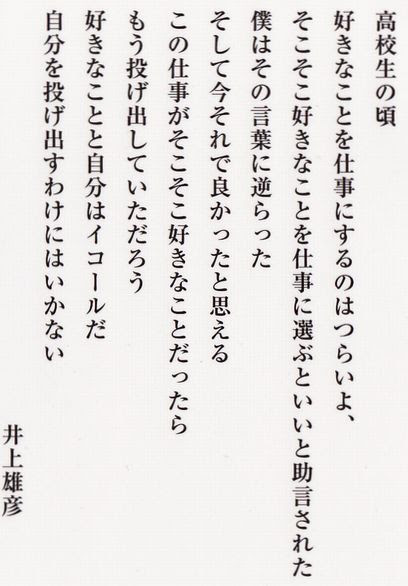 高校生の頃
好きなことを仕事にするのはつらいよ、
そこそこ好きなことを仕事に選ぶといいと助言された
僕はその言葉に逆らった
そして今それで良かったと思える
この仕事がそこそこ好きなことだったら
もう投げ出していただろう
好きなことと自分はイコールだ
自分を投げ出すわけにはいかない
井上雄彦